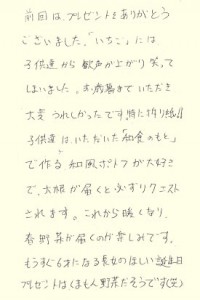 前回は、プレゼントをありがとう
ございました。「いちご」には
子供達から歓声が上がり笑って
しまいました。お歳暮までいただき
大変うれしかったです。特に折り紙!!
子供達は、いただいた「和食のもと」
で作る和風ポトフが大好き
で、大根が届くと必ずリクエスト
されます。これから暖くなり、
春野菜が届くのが楽しみです。
もうすぐ6才になる長女のほしい誕生日
プレゼントは「くまもん野菜」だそうです(笑)